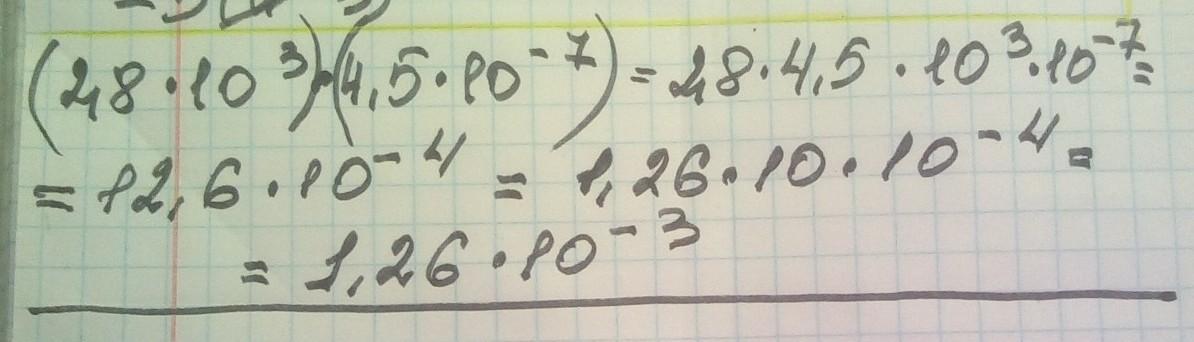 (2,8·10³)·(4,5·10⁻⁷)=2,8·4,5·10³·10⁻⁷=
=12,6·10⁻⁴=1,26·10·10⁻⁴=
=1,26·10⁻³